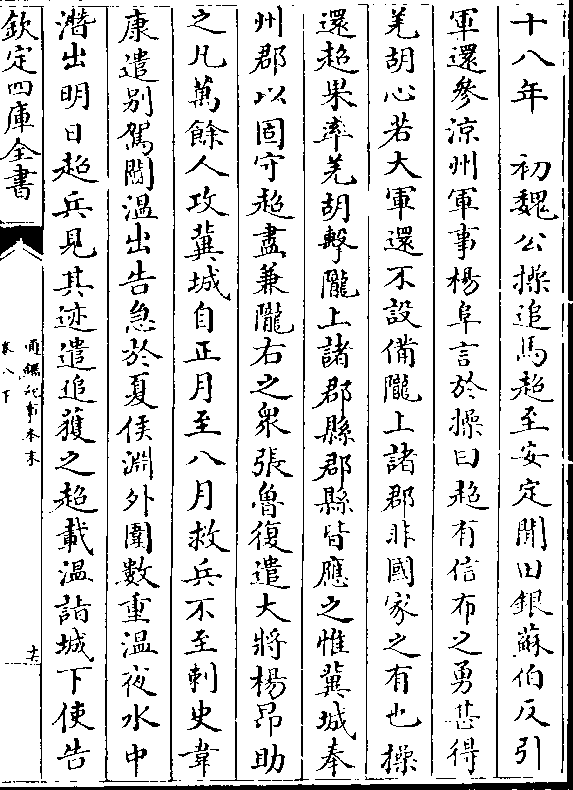 十八年　初魏公操追馬超至安定聞田銀蘇伯反引
軍還參涼州軍事楊阜言於操曰超有信布之勇甚得
羌胡心若大軍還不設備隴上諸郡非國家之有也操
還超果率羌胡擊隴上諸郡縣郡縣皆應之惟冀城奉
州郡以固守超盡兼隴右之衆張魯復遣大將楊昂助
之凡萬餘人攻冀城自正月至八月救兵不至刺史韋
康遣别駕閻温出告急於夏侯淵外圍數重温夜水中
潛出明日超兵見其迹遣追獲之超載温詣城下使告
欽定四庫全書
通鑑紀事本末
卷八下
十六